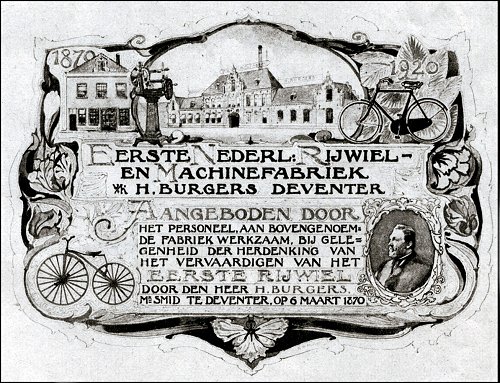 1870
1920
EERSTE NEDERL: RIJWIEL-
EN MACHINEFABRIEK
H. BURGERS DEVENTER
AANGEBODEN DOOR
HET PERSONEEL, AAN BOVENGENOEM-
DE FABRIEK WERKZAAM, BIJ GELE-
GENHEID DER HERDENKING VAN
HET VERVAARDIGEN VAN HET
EERSTE RIJWIEL
DOOR DEN HEER H. BURGERS.
MR SMID TE DEVENTER, OP 6 MAART 1870